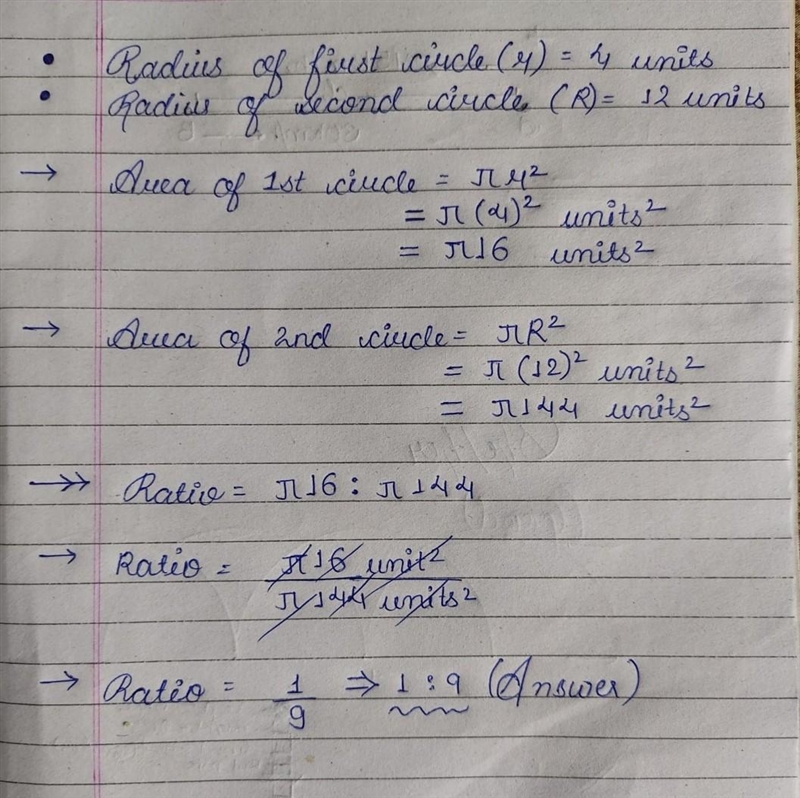 • Radius of first circle (r) = 4 units
• Radius of second circle (R) = 12 units
→ Area of 1st circle = πr²
= π(4)² units²
= π16 units²
→ Area of 2nd circle = πR²
= π(12)² units²
= π144 units²
→» Ratio = π16 : π144
→ Ratio = π16 unit²
π144 units²
→ Ratio = 1/9 ⇒ 1 : 9 (Answer)